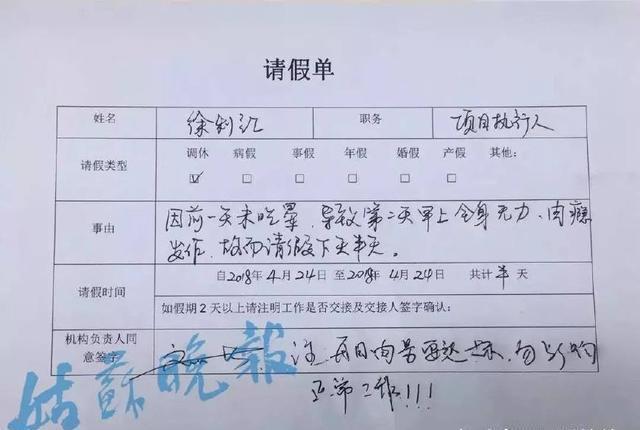 请假单
姓名 徐利江 职务 项目执行人
请假类型 调休 病假 事假 年假 婚假 产假 其他：
☑ □ □ □ □ □
事由 因前一天未吃荤，导致第二天早上全身无力，肉瘾
发作，故而请假下天半天。
请假时间 自2018年4月24日至2018年4月24日 共计半天
如假期2天以上请注明工作是否交接及交接人签字确认：
机构负责人同
意签字 注 每日肉量要达标，勿影响
正常工作!!!
姑蘇晚報